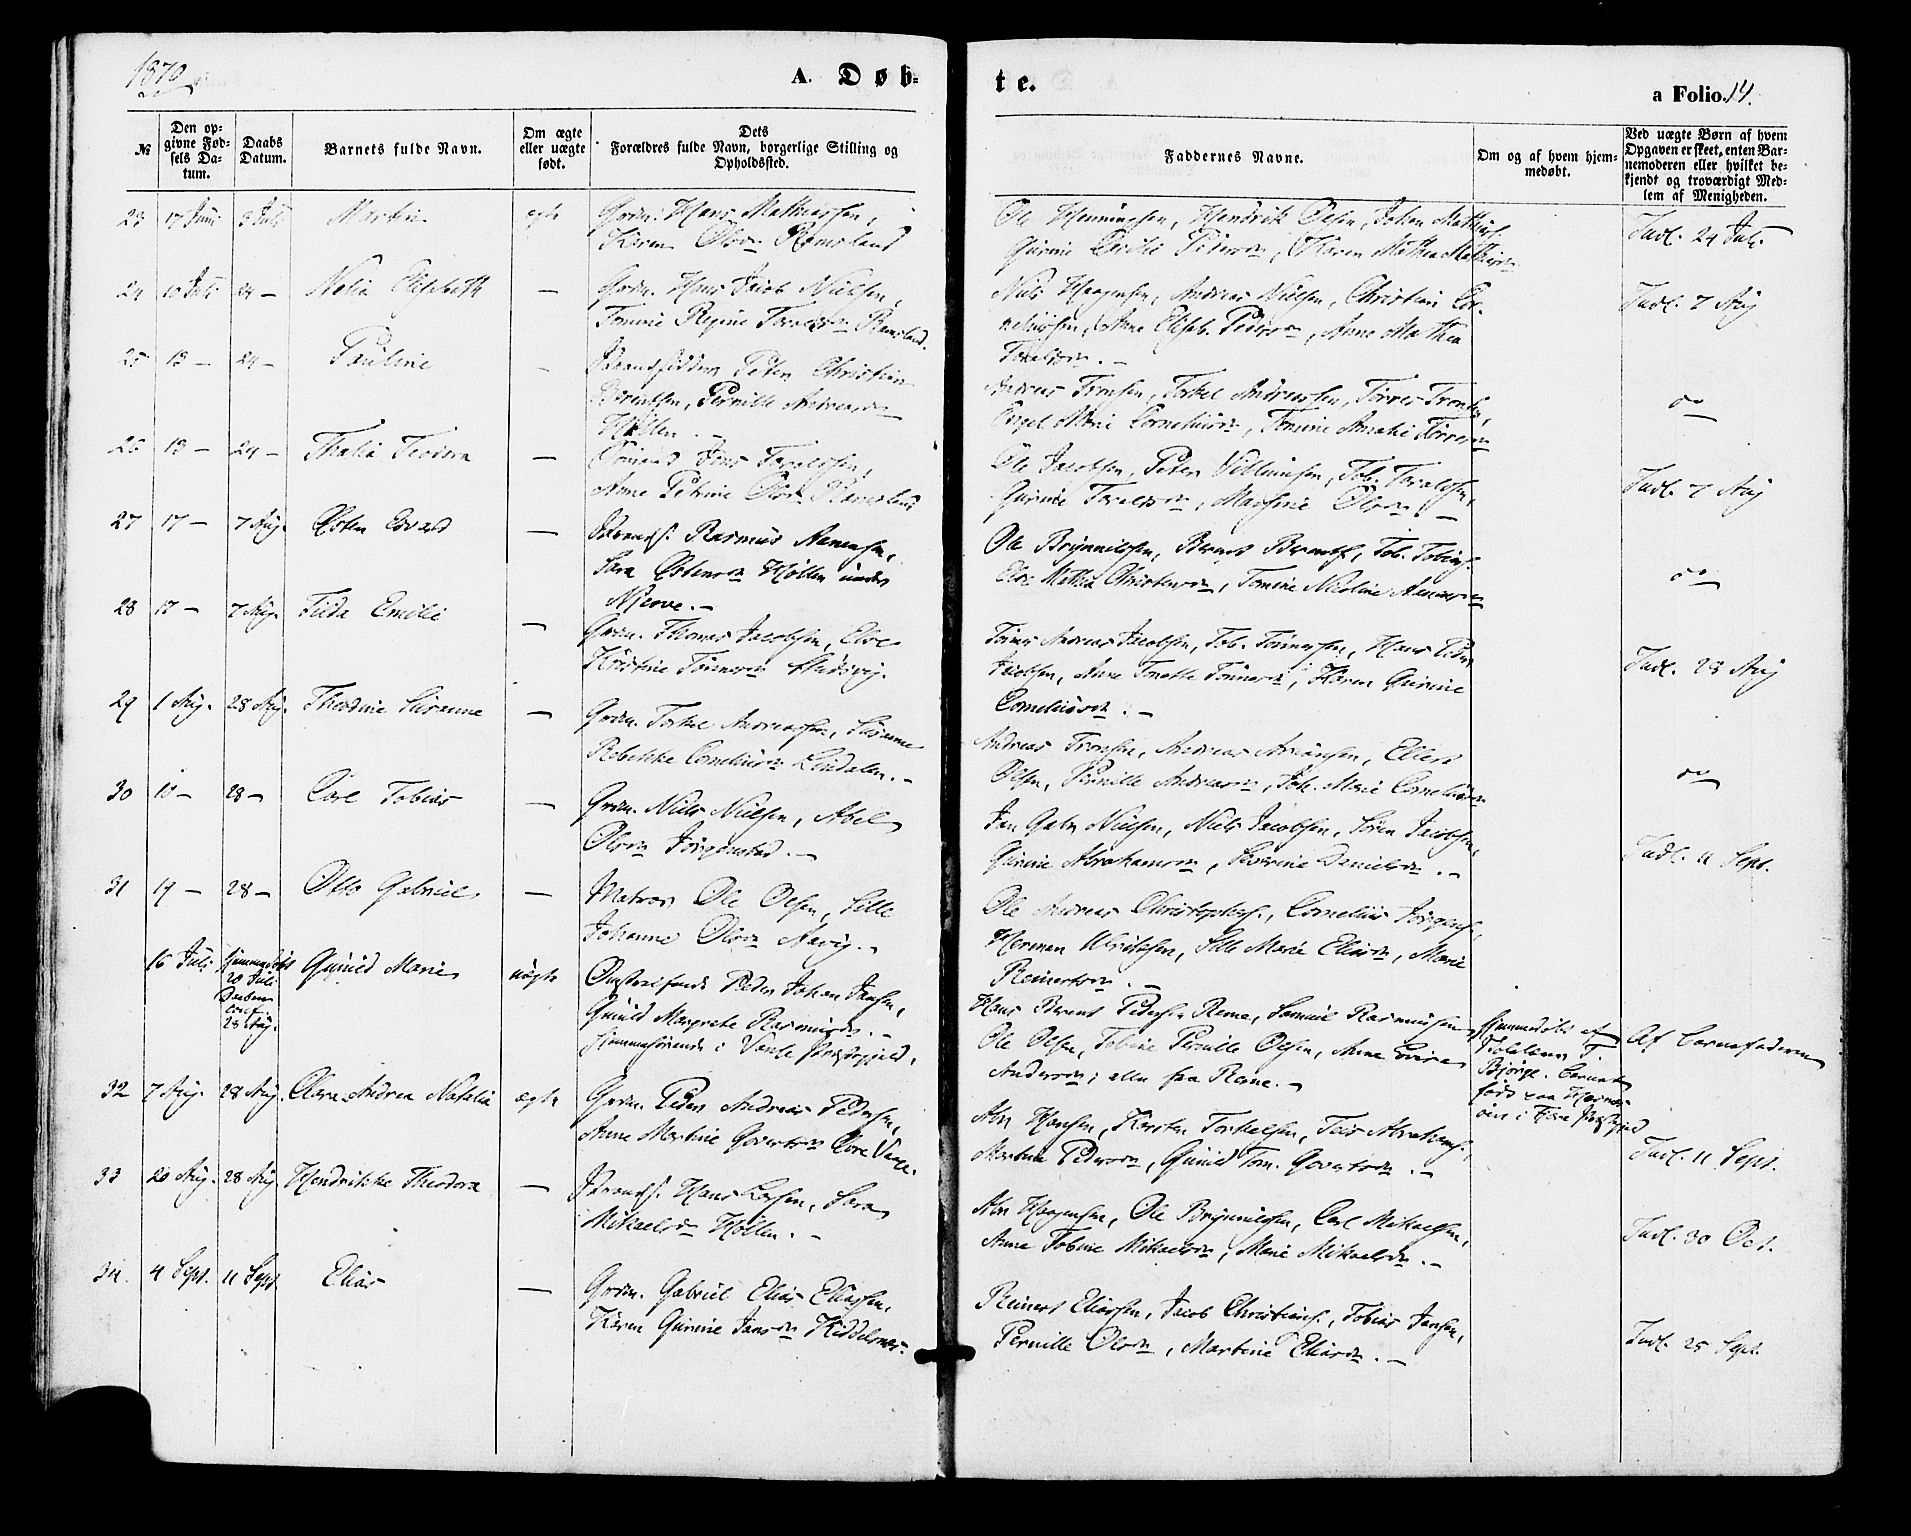 1870
A. Døb-
te.
a Folio. 14.
№
Den op-
givne Fød-
sels Da-
tum.
Daabs
Datum.
Barnets fulde Navn.
Om ægte
eller uægte
født.
Dets
Forældres fulde Navn, borgerlige Stilling og
Opholdssted.
Faddernes Navne.
Om og af hvem hjem-
medøbt.
Ved uægte Børn af hvem
Opgaven er skeet, enten Bar-
nemoderen eller hvilket be-
kjendt og troværdigt Med-
lem af Menigheden.
23 17 Juni 3 Juli Martin ægte Grdm. Hans Mathiassen,
Karen Olsdr Ramsland
Ole Henningsen, Hendrik Olsen, Johan Mathias.
Gurine Pedersdr, Karen Mathea Mathiasdr
Indl. 24 Juli
24 10 Juli 24 — Nelia Elisabeth — Grdm. Hans Jacob Nielsen,
Tomine Regine Taraldsdr Ramsland.
Niels Haagensen, Andreas Nielsen, Christian Cor-
neliussen, Anne Elisab. Pedersdr, Anne Mathea
Taraldsdr. —
Indl. 7 Aug
25 13 — 24 — Pauline — Strandsidder Peter Christian
Berentsen, Pernille Andreasdr
Høllen. —
Andreas Tronsen, Torkel Andreassen, Tørres Tronsen,
Engel Marie Corneliusdr, Tomine Amalie Tørresdr
do
26 13 — 24 — Thalia Teodora — Jens Taraldsen,
Anne Petrine Olsdr Ramsland
Ole Jacobsen, Peter Villumsen, Tob. Taraldsen,
Gurine Taraldsdr, Massine Olsdr. —
Indl. 7 Aug
27 17 — 7 Aug. Østen Edvard — Strands. Rasmus Aanensen,
Sara Østensdr Høllen under
Njerve. —
Ole Brynnildsen, Bernt Berntsen, Tob. Tobias.
Else Mathea Christensdr, Tomine Nicoline Aanensdr
do
28 17 — 7 Aug. Tilda Emilie — Grdm. Thomas Jacobsen, Else
Kristine Tønnesdr Udsvig.
Tønnes Andreas Jacobsen, Tob. Tønnessen, Hans Peder
Jacobsen, Anne Tonette Tønnesdr, Karen Gurine
Corneliusdr. —
Indl. 28 Aug
29 1 Aug. 28 Aug. Theodine Susanne — Grdm. Torkel Andreassen, Susanne
Rebekke Corneliusdr Lindalen. —
Andreas Tronsen, Andreas Andreassen, Ellert
Olsen, Pernille Andreasdr, Joh. Marie Corneliusdr
do
30 10 — 28 — Carl Tobias — Grdm. Niels Nielsen, Abel
Olsdr Jørgenstad. —
Jan Gabr. Nielsen, Niels Jacobsen, Søren Jacobsen,
Gurine Abrahamsdr, Severine Danielsdr. —
Indl. 11 Sept.
31 19 — 28 — Otto Gabriel — Matros Ole Olsen, Sille
Johanne Olsdr Aavig. —
Ole Andreas Christophers., Cornelius Jørgens.,
Herman Ulriksen, Sille Marie Eliasdr, Marie
Reinertsdr. —
16 Juli hjemmedøbt
20 Juli
Daaben
conf.
28 Aug. Gunild Marie uægte Ungkarl Peder Johan Jansen,
Gunild Margrete Rasmusdr. —
hjemmehørende i Vanse Præstegjeld.
Hans Bernt Pedersen Reme, Samuel Rasmussen
Ole Olsen, Tobine Pernille Olsen, Anne Lovise
Andersdr; alle fra Reme. —
Hjemmedøbt af
Bjørge. Barnet
født paa
i Præstegjeld
Af Barnefaderen
32 7 Aug. 28 Aug. Clara Andrea Natalia ægte Grdm. Peder Andreas Pedersen,
Anne Martine Govertsdr Vaage.
Abr Hansen, Karsten Torkelsen, Teis Abrahams.,
Martine Pedersdr, Gunild Tom. Govertsdr. —
Indl. 11 Sept.
33 20 Aug. 28 Aug Hendrikke Theodora — Strands. Hans Larsen, Sara
Mikaelsdr Høllen. —
Abr Haagensen, Ole Brynnildsen, Carl Mikaelsen,
Anne Tobine Mikaelsdr, Marie Mikaelsdr. —
Indl. 30 Oct.
34. 4 Sept. 11 Sept Elias — Grdm. Gabriel Elias Eliassen,
Karen Gurine Jansdr Kiddelsnes.
Reinert Eliassen, Jacob Christians., Tobias Jansen,
Pernille Olsdr, Martine Eliasdr. —
Indl. 25 Sept.